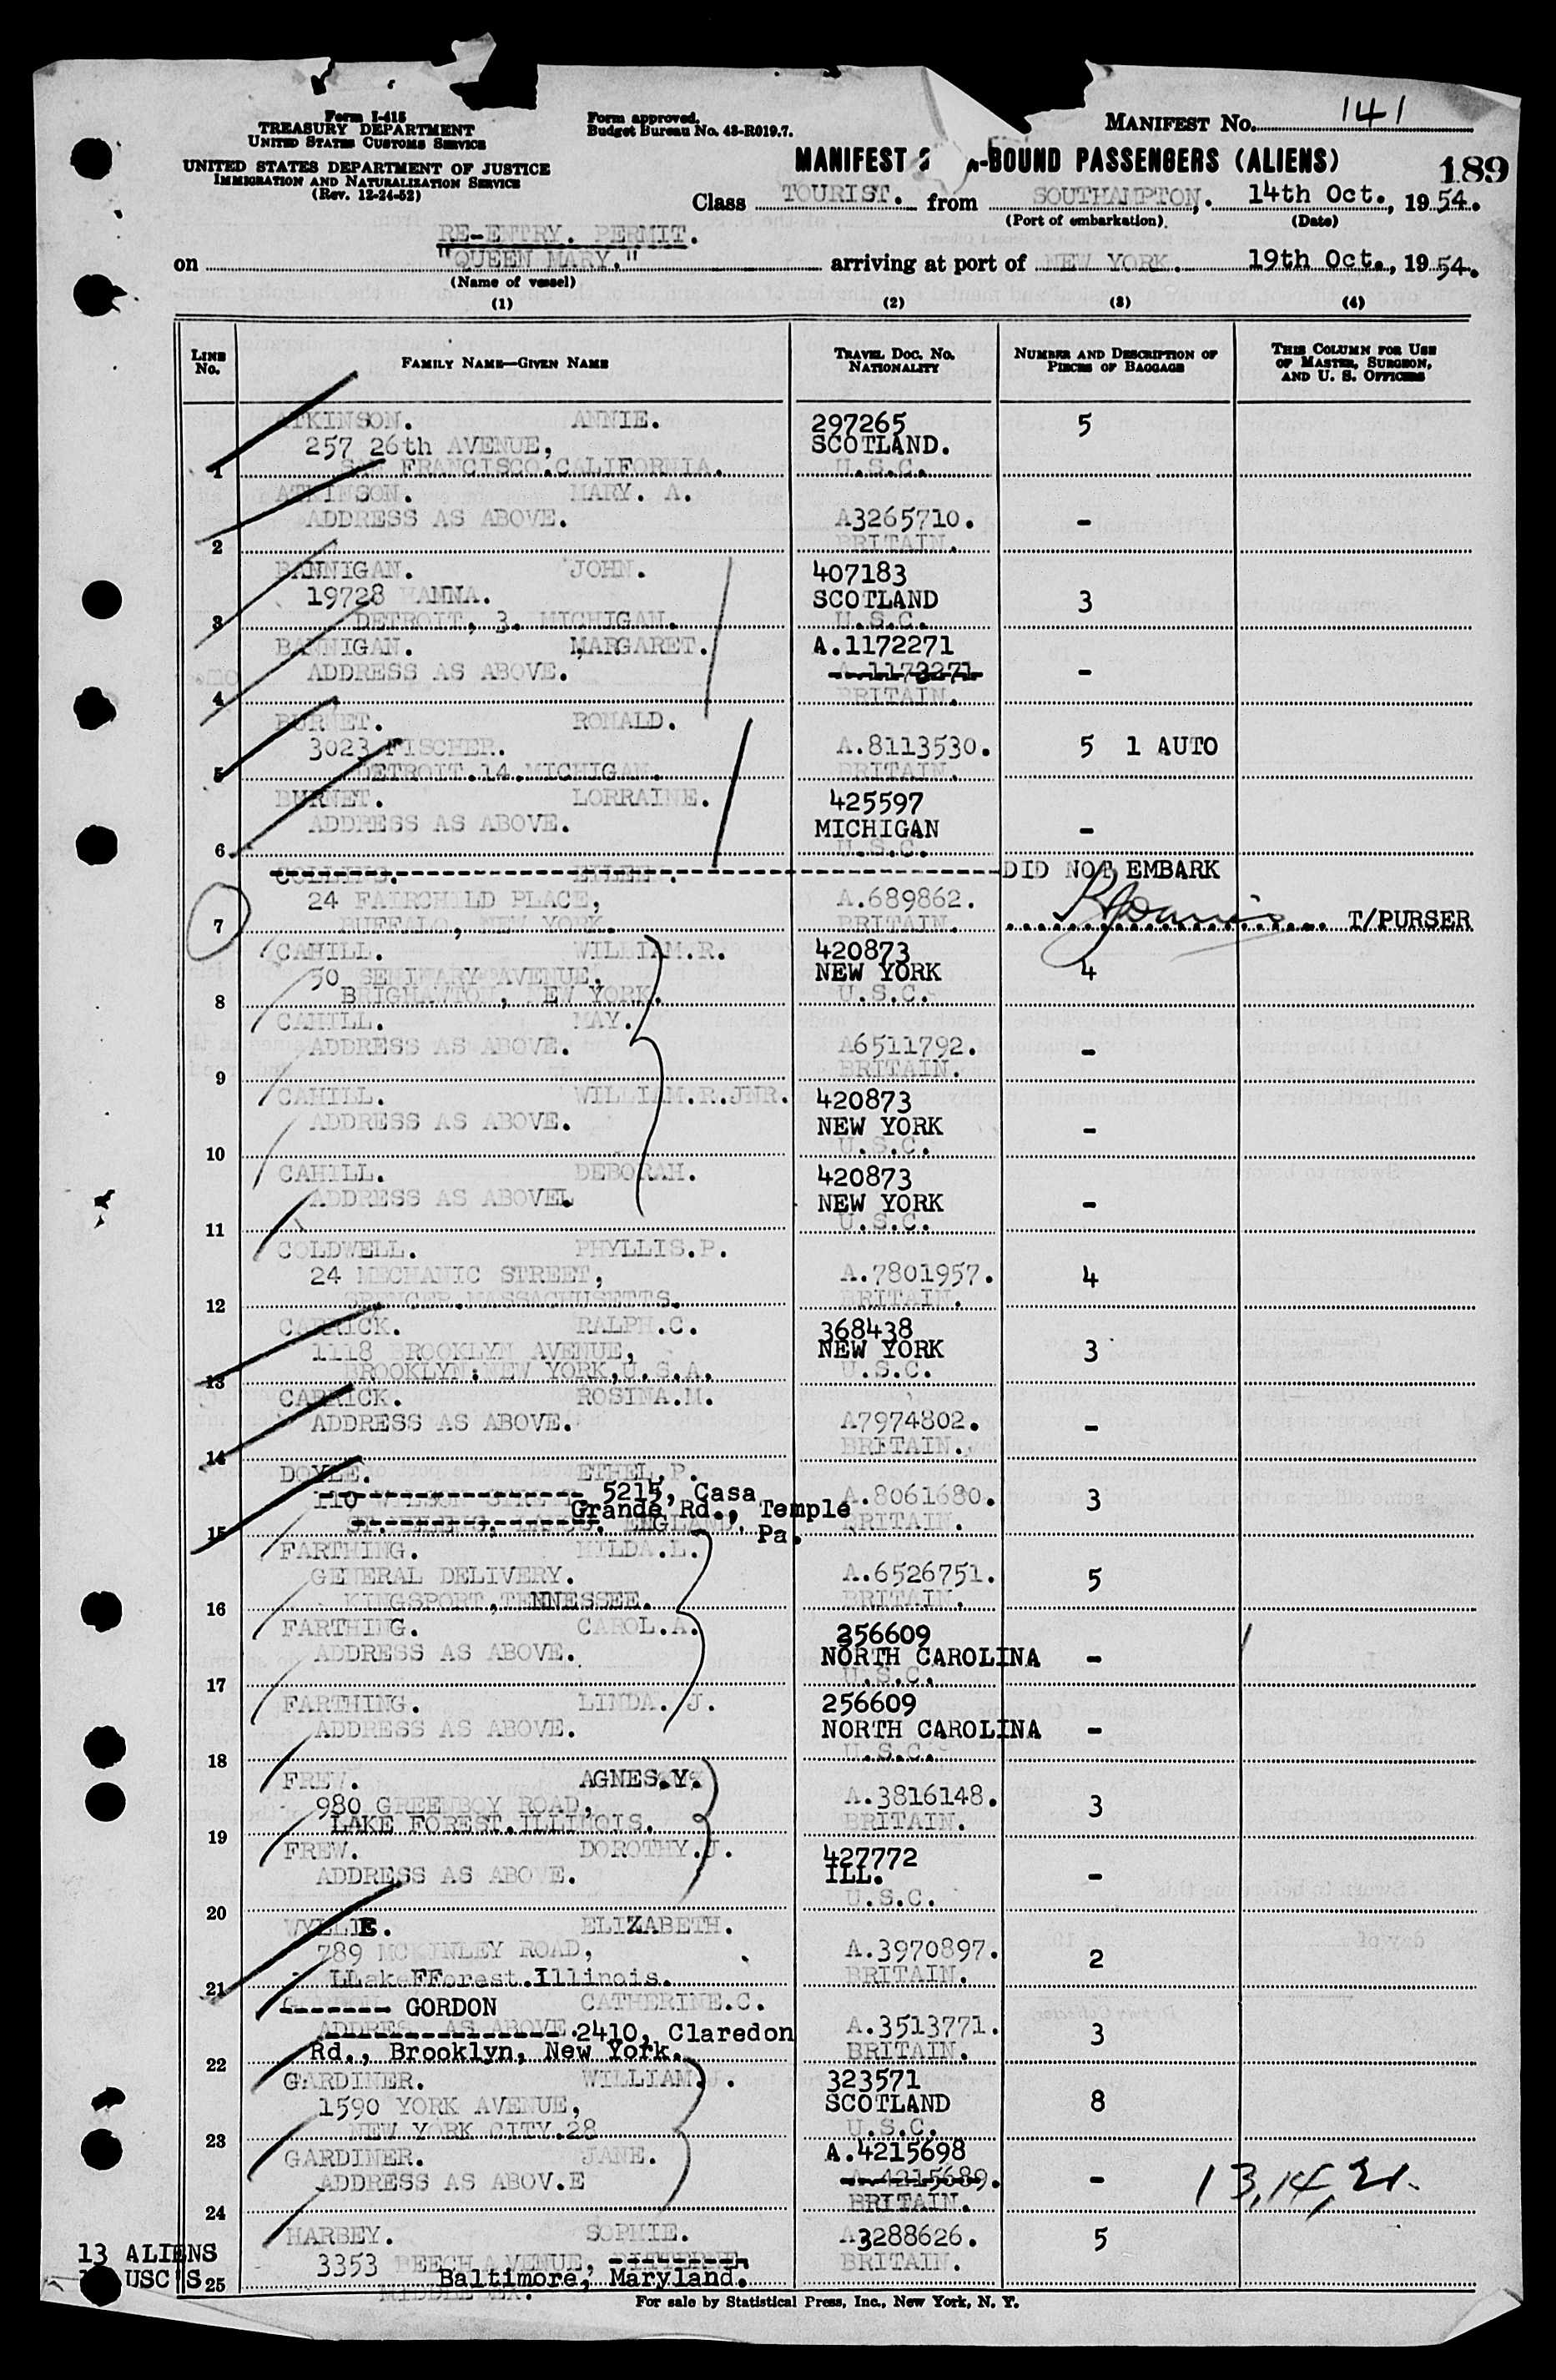 Form I-415
TREASURY DEPARTMENT
UNITED STATES CUSTOMS SERVICE
UNITED STATES DEPARTMENT OF JUSTICE
IMMIGRATION AND NATURALIZATION SERVICE
(Rev. 12-24-52)
Form approved.
Budget Bureau No. 43-R019.7.
MANIFEST NO. 141
MANIFEST -BOUND PASSENGERS (ALIENS) 189
Class TOURIST. from SOUTHAMPTON, 14th Oct., 1954.
(Port of embarkation) (Date)
RE-ENTRY. PERMIT.
on "QUEEN MARY." arriving at port of NEW YORK. 19th Oct., 1954.
(Name of vessel)
(1) (2) (3) (4)
LINE No. FAMILY NAME—GIVEN NAME TRAVEL DOC. NO. NATIONALITY NUMBER AND DESCRIPTION OF PIECES OF BAGGAGE THIS COLUMN FOR USE OF MASTER, SURGEON, AND U. S. OFFICERS
ATKINSON. ANNIE. 297265 5
257 26th AVENUE, SCOTLAND.
1 SAN FRANCISCO.CALIFORNIA. U.S.C.
ATKINSON. MARY. A.
ADDRESS AS ABOVE. A3265710. -
2 BRITAIN.
BANNIGAN. JOHN. 407183
19728 HANNA. SCOTLAND 3
3 DETROIT, 3. MICHIGAN. U.S.C.
BANNIGAN. MARGARET. A.1172271
ADDRESS AS ABOVE. A.1173271 -
4 BRITAIN.
BURNET. RONALD.
3023 FISCHER. A.8113530. 5 1 AUTO
5 DETROIT.14.MICHIGAN. BRITAIN.
BURNET. LORRAINE. 425597
ADDRESS AS ABOVE. MICHIGAN -
6 U.S.C.
COLLINS. EILEEN. DID NOT EMBARK
24 FAIRCHILD PLACE, A.689862.
7 BUFFALO, NEW YORK. BRITAIN. T/PURSER
CAHILL. WILLIAM.R. 420873
50 SEMINARY AVENUE, NEW YORK 4
8 BRIGHAMTON, NEW YORK. U.S.C.
CAHILL. MAY.
ADDRESS AS ABOVE. A6511792. -
9 BRITAIN.
CAHILL. WILLIAM.R.JNR. 420873
ADDRESS AS ABOVE. NEW YORK -
10 U.S.C.
CAHILL. DEBORAH. 420873
ADDRESS AS ABOVE. NEW YORK -
11 U.S.C.
COLDWELL. PHYLLIS.P.
24 MECHANIC STREET, A.7801957. 4
12 SPENCER.MASSACHUSETTS. BRITAIN.
CARRICK. RALPH.C. 368438
1118 BROOKLYN AVENUE, NEW YORK 3
13 BROOKLYN:NEW YORK,U.S.A. U.S.C.
CARRICK. ROSINA.M.
ADDRESS AS ABOVE. A7974802. -
14 BRITAIN.
DOYLE. ETHEL.P.
110 WILSON STREET 5215, Casa A.8061680. 3
15 ST.HELENS. LANCS. ENGLAND. Grande Rd., Temple Pa. BRITAIN.
FARTHING. HILDA.L.
GENERAL DELIVERY. A.6526751. 5
16 KINGSPORT,TENNESSEE. BRITAIN.
FARTHING. CAROL.A. 256609
ADDRESS AS ABOVE. NORTH CAROLINA -
17 U.S.C.
FARTHING. LINDA. J. 256609
ADDRESS AS ABOVE. NORTH CAROLINA -
18 U.S.C.
FREW. AGNES.Y.
980 GREENBOY ROAD, A.3816148. 3
19 LAKE FOREST.ILLINOIS. BRITAIN.
FREW. DOROTHY.J. 427772
ADDRESS AS ABOVE. ILL. -
20 U.S.C.
WYLLIE. ELIZABETH.
789 MCKINLEY ROAD, A.3970897. 2
21 LLakeFForest.Illinois. BRITAIN.
GORDON CATHERINE.C.
ADDRESS AS ABOVE. 2410, Claredon A.3513771. 3
22 Rd., Brooklyn, New York. BRITAIN.
GARDINER. WILLIAM.J. 323571
1590 YORK AVENUE, SCOTLAND 8
23 NEW YORK CITY.28 U.S.C.
GARDINER. JANE. A.4215698
ADDRESS AS ABOV.E A.4215689. - 13,14,21.
24 BRITAIN.
HARBEY. SOPHIE. A3288626. 5
13 ALIENS 3353 BEECH AVENUE, BRITAIN.
USC'S 25 Baltimore, Maryland.
For sale by Statistical Press, Inc., New York, N. Y.